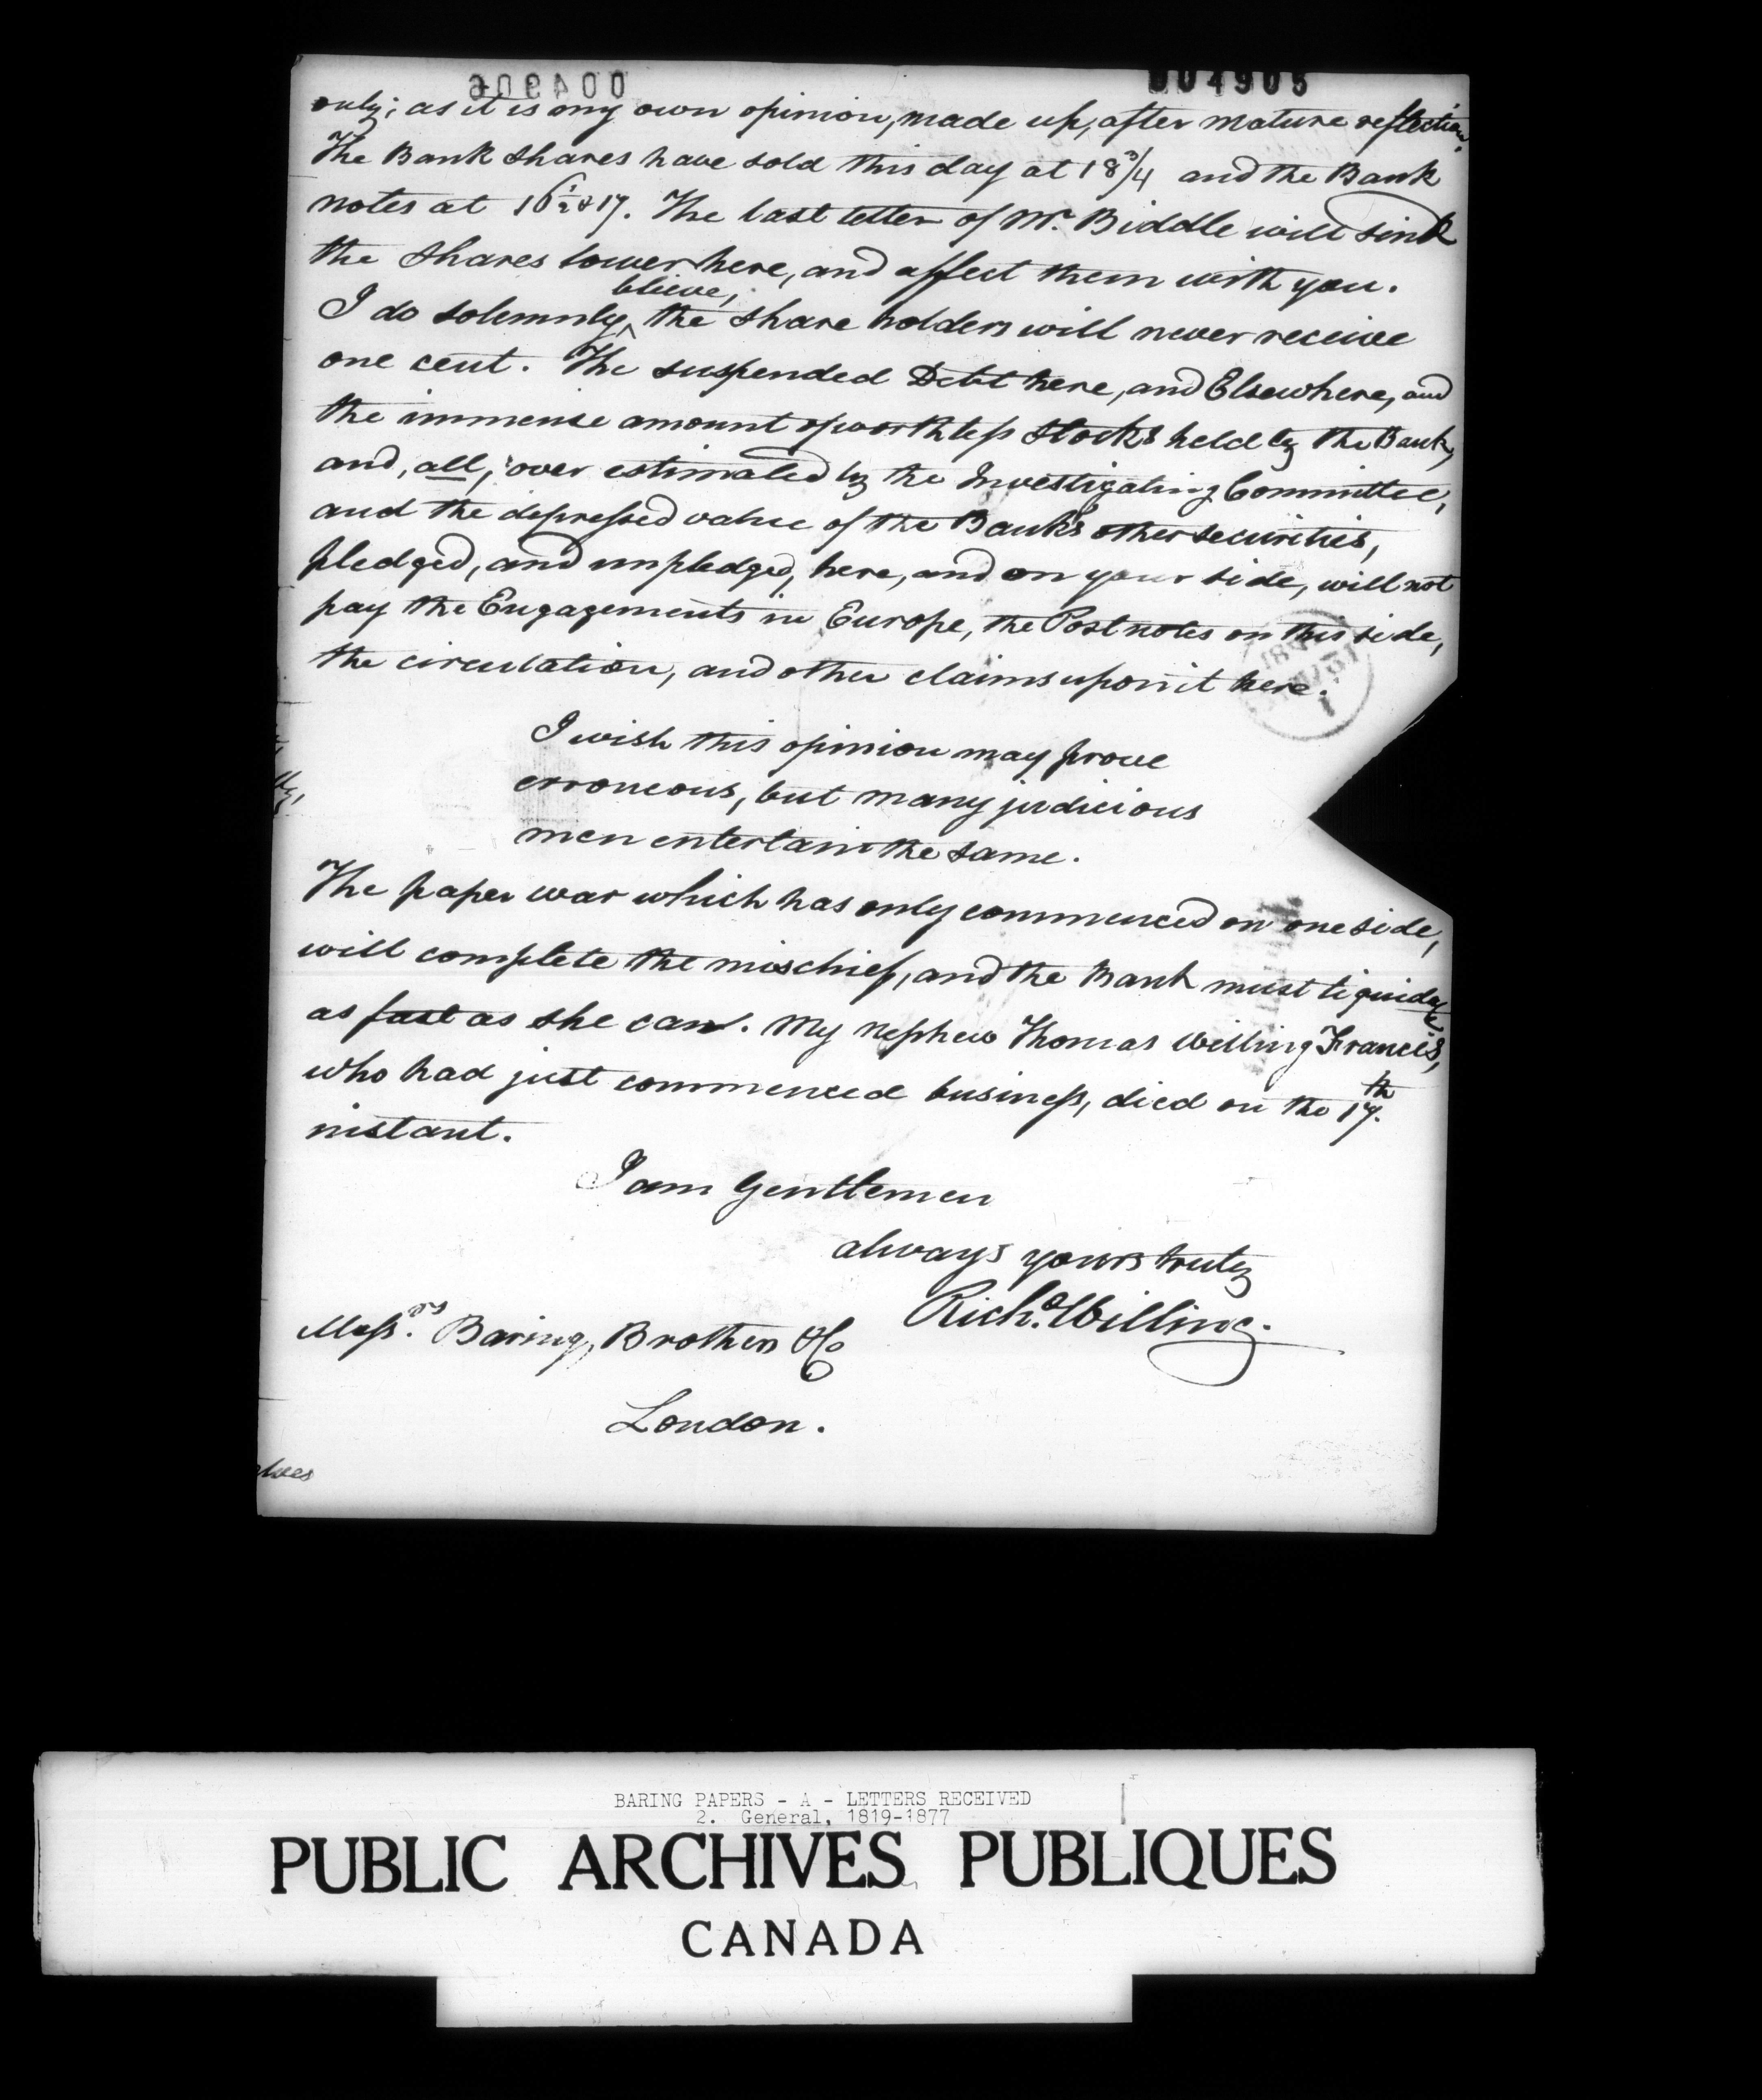 004905
only; as it is my own opinion, made up, after mature reflection.
The Bank shares have sold this day at 18 3/4 and the Bank
notes at 16 1/2 & 17. The last letter of Mr. Biddle will sink
the shares lower here, and affect them with you.
I do solemnly believe, the share holders will never receive
one cent. The suspended Debt here, and Elsewhere, and
the immense amount of worthless stocks held by the Bank,
and, all, over estimated by the Investigating Committee,
and the depressed value of the Bank's other securities,
pledged, and unpledged, here, and on your side, will not
pay the Engagements in Europe, the Post notes on this side,
the circulation, and other claims upon it here.
I wish this opinion may prove
erroneous, but many judicious
men entertain the same.
The paper war which has only commenced on one side,
will complete the mischief, and the Bank must liquidate,
as fast as she can. My nephew Thomas Willing Francis,
who had just commenced business, died on the 17th.
instant.
I am Gentlemen
always yours truly
Richd. Willing.
Messrs. Baring, Brothers & Co
London.
BARING PAPERS - A - LETTERS RECEIVED
2. General, 1819-1877
PUBLIC ARCHIVES PUBLIQUES
CANADA